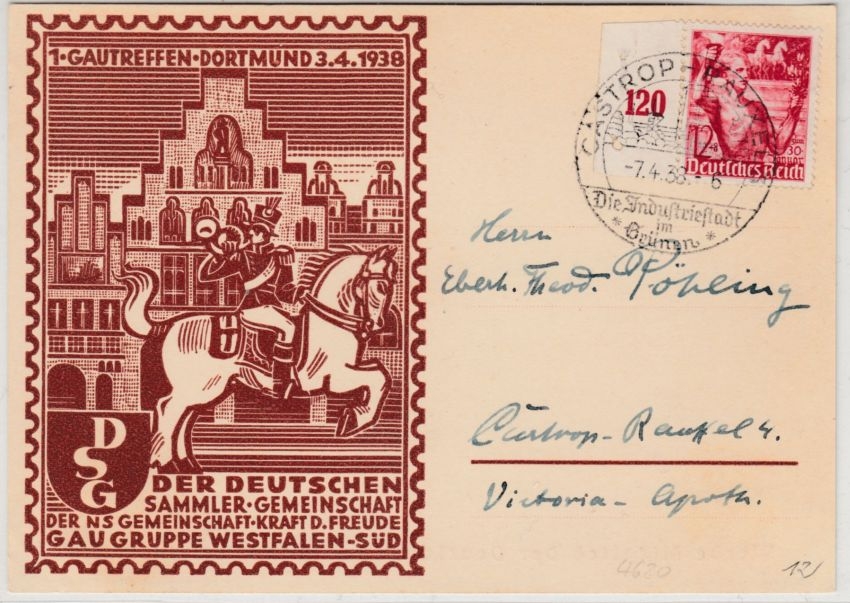 1·GAUTREFFEN·DORTMUND 3.4.1938
DSG
DER DEUTSCHEN
SAMMLER·GEMEINSCHAFT
DER NS GEMEINSCHAFT·KRAFT D. FREUDE
GAUGRUPPE WESTFALEN-SÜD
120
12
30
Deutsches Reich
CASTROP-RAUXEL
-7.4.38.
6
Die Industriestadt
im
* Grünen *
Herrn
Eberh. Theod. Röhling
Castrop-Rauxel 4.
Victoria-Apoth.
4620
12